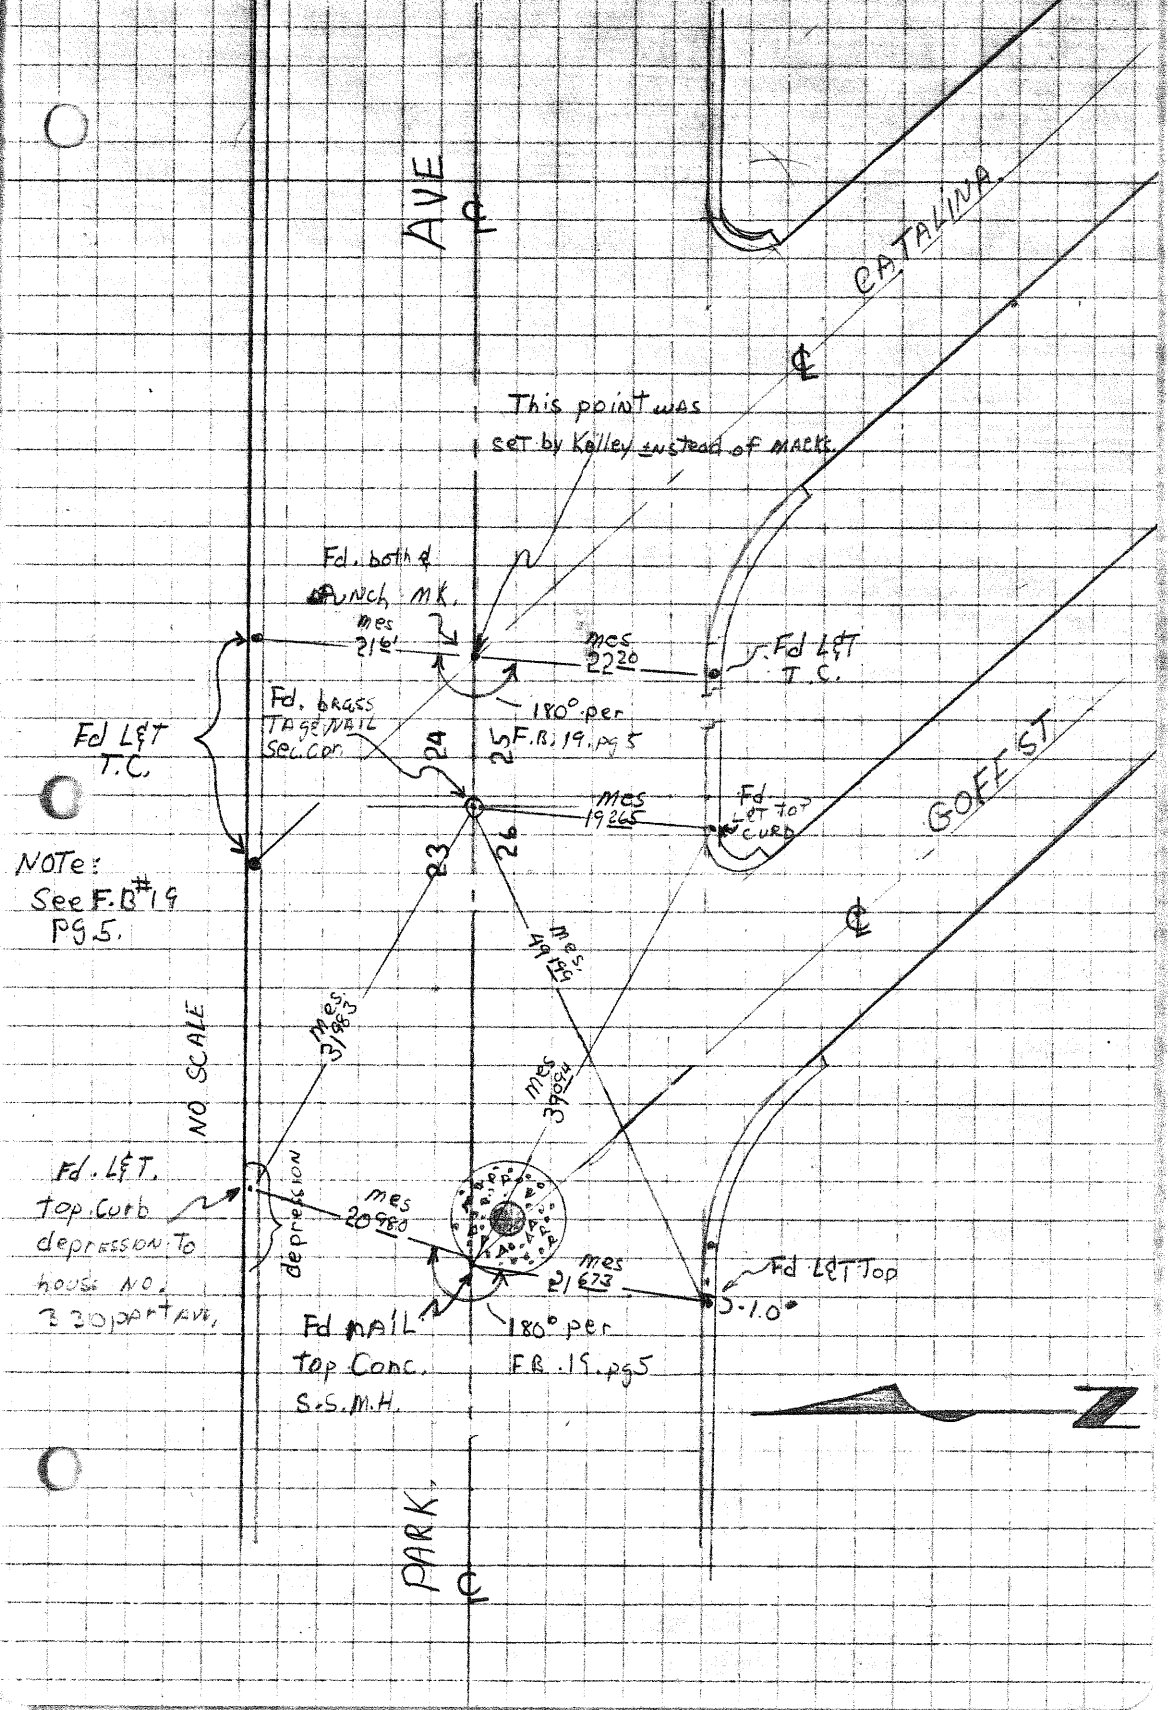 AVE
℄
CATALINA.
℄
This point was
set by Kelley instead of marks.
Fd. both &
Punch MK.
mes
21 61
mes
22 20
Fd L&T
T.C.
180° per
F.B. 19. pg 5
Fd. brass
TAG & NAIL
Sec. Cor.
Fd L&T
T.C.
24
25
23
26
mes
19 265
Fd
L&T TOP
CURB
GOFF ST
℄
NOTE:
See F.B #19
pg 5.
mes.
49 199
mes.
31 983
mes
39 094
NO SCALE
Fd. L&T.
top Curb
depression To
house NO.
330
AVE,
depression
mes
20 980
mes
21 673
Fd L&T Top
-1.0°
Fd NAIL
top Conc.
S.S.M.H.
180° per
F.B. 19. pg 5
N
PARK.
℄